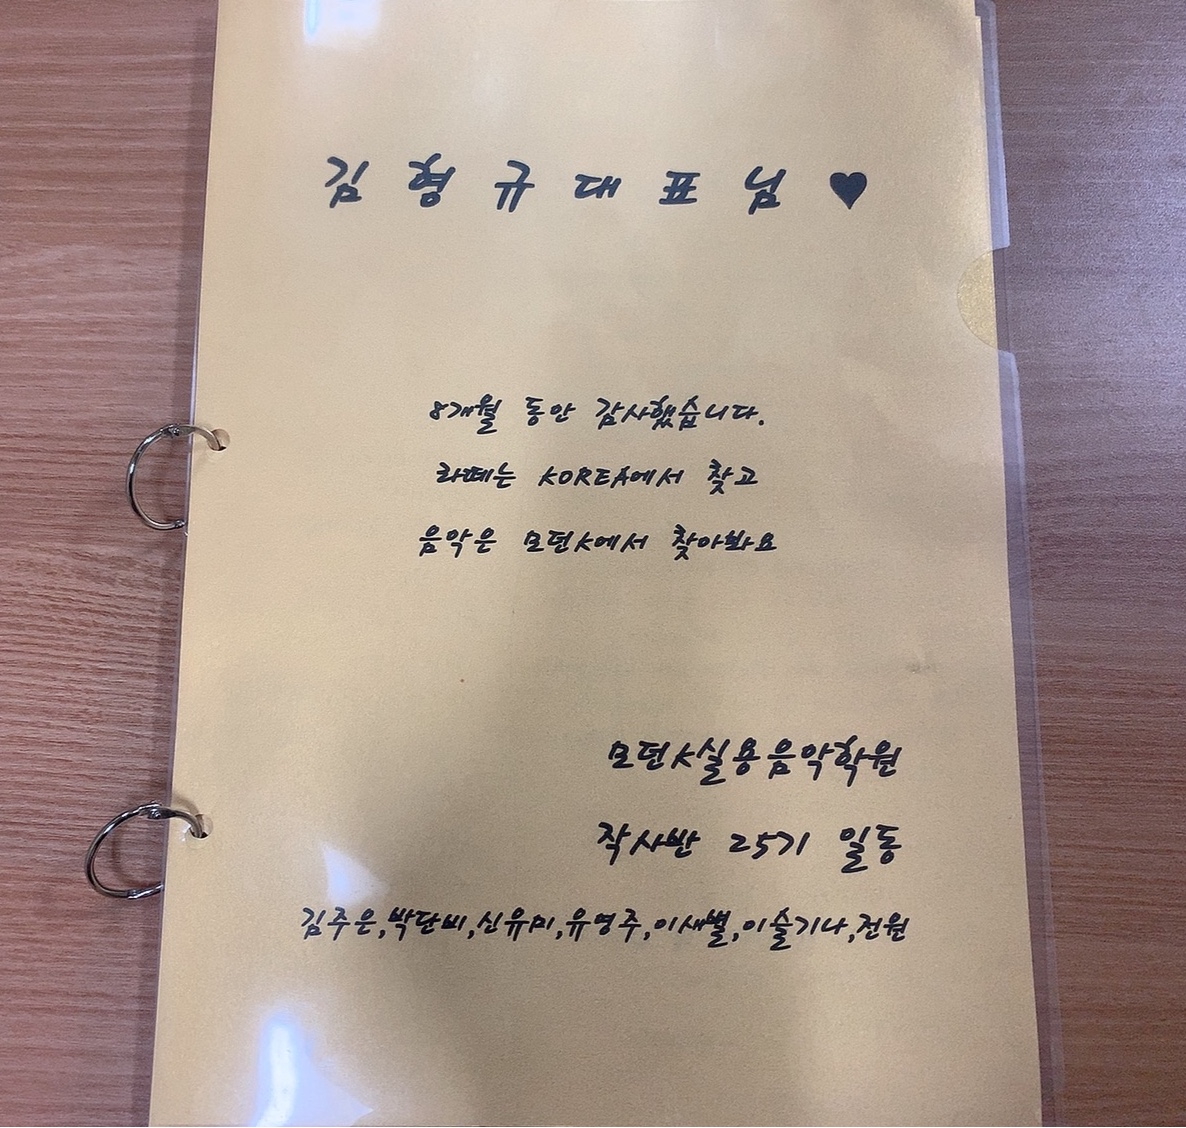 김 형 규 대 표 님 ♥
8개월 동안 감사했습니다.
라떼는 KOREA에서 찾고
음악은 모던K에서 찾아봐요
모던K실용음악학원
작사반 25기 일동
김주은,박단비,신유미,유영주,이새별,이슬기나,전원